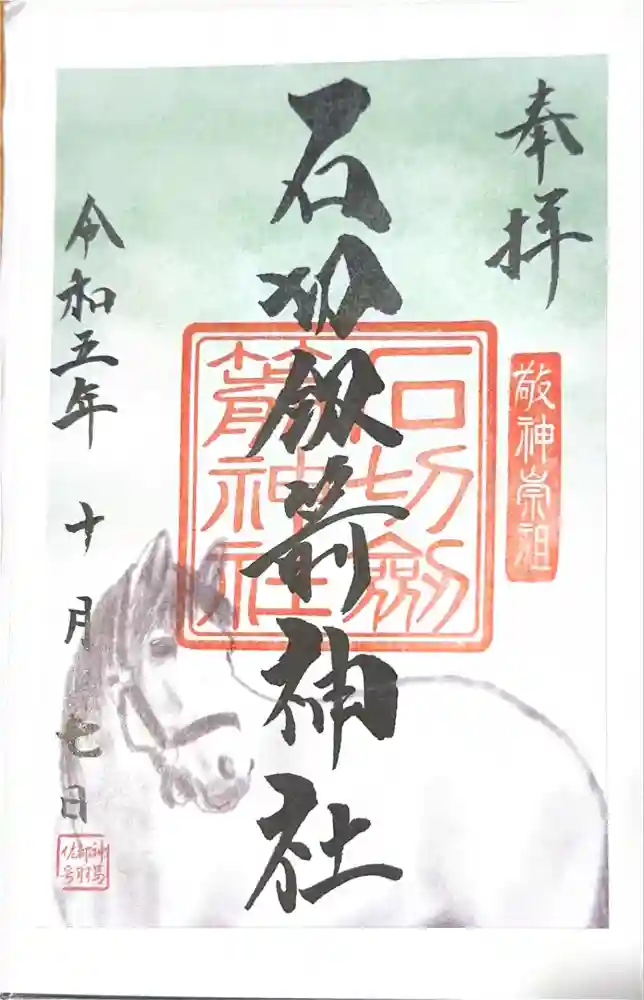 奉拝
敬神崇祖
石切劔箭神社
石切劔
箭神社
令和五年 十月 七日